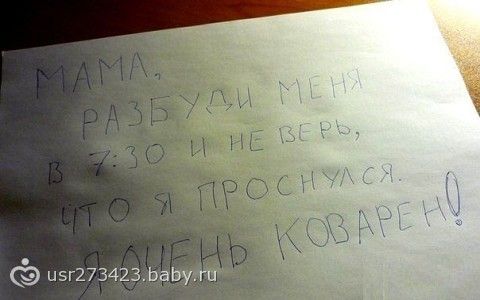 МАМА,
РАЗБУДИ МЕНЯ
В 7:30 И НЕ ВЕРЬ,
ЧТО Я ПРОСНУЛСЯ.
Я ОЧЕНЬ КОВАРЕН!
usr273423.baby.ru